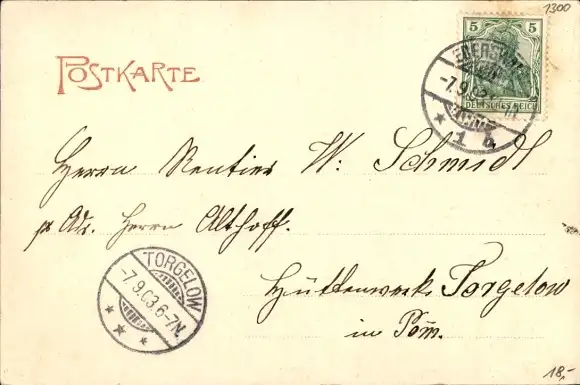 1300
POSTKARTE
5 5
DEUTSCHES REICH
-7.9.03
* 1 b *
Herrn Rentier W: Schmidt
p Ad. Herrn Althoff.
TORGELOW
-7.9.03.6-7N.
* * *
Hüttenwerk Torgelow
in Pom.
18,-